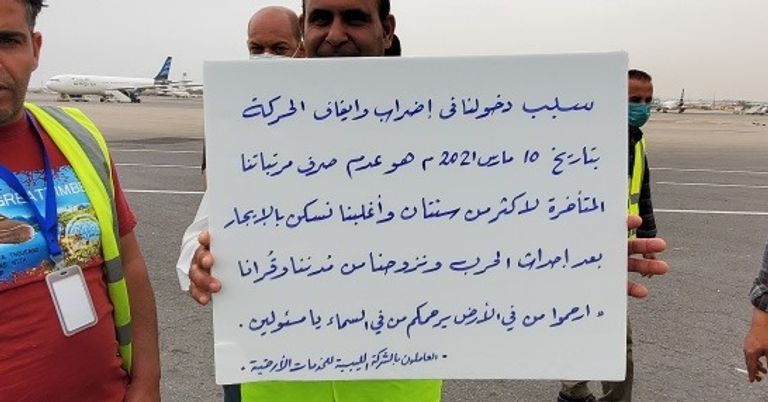 سبب دخولنا في إضراب وايقاف الحركة
بتاريخ 15 مارس 2021 م هو عدم صرف مرتباتنا
المتأخرة لاكثر من سنتان وأغلبنا نسكن بالإيجار
بعد احداث الحرب ونزوحنا من مُدننا وقُرانا
« ارحموا من في الأرض يرحمكم من في السماء يا مسئولين .
- العاملون بالشركة الليبية للخدمات الأرضية .
GREAT